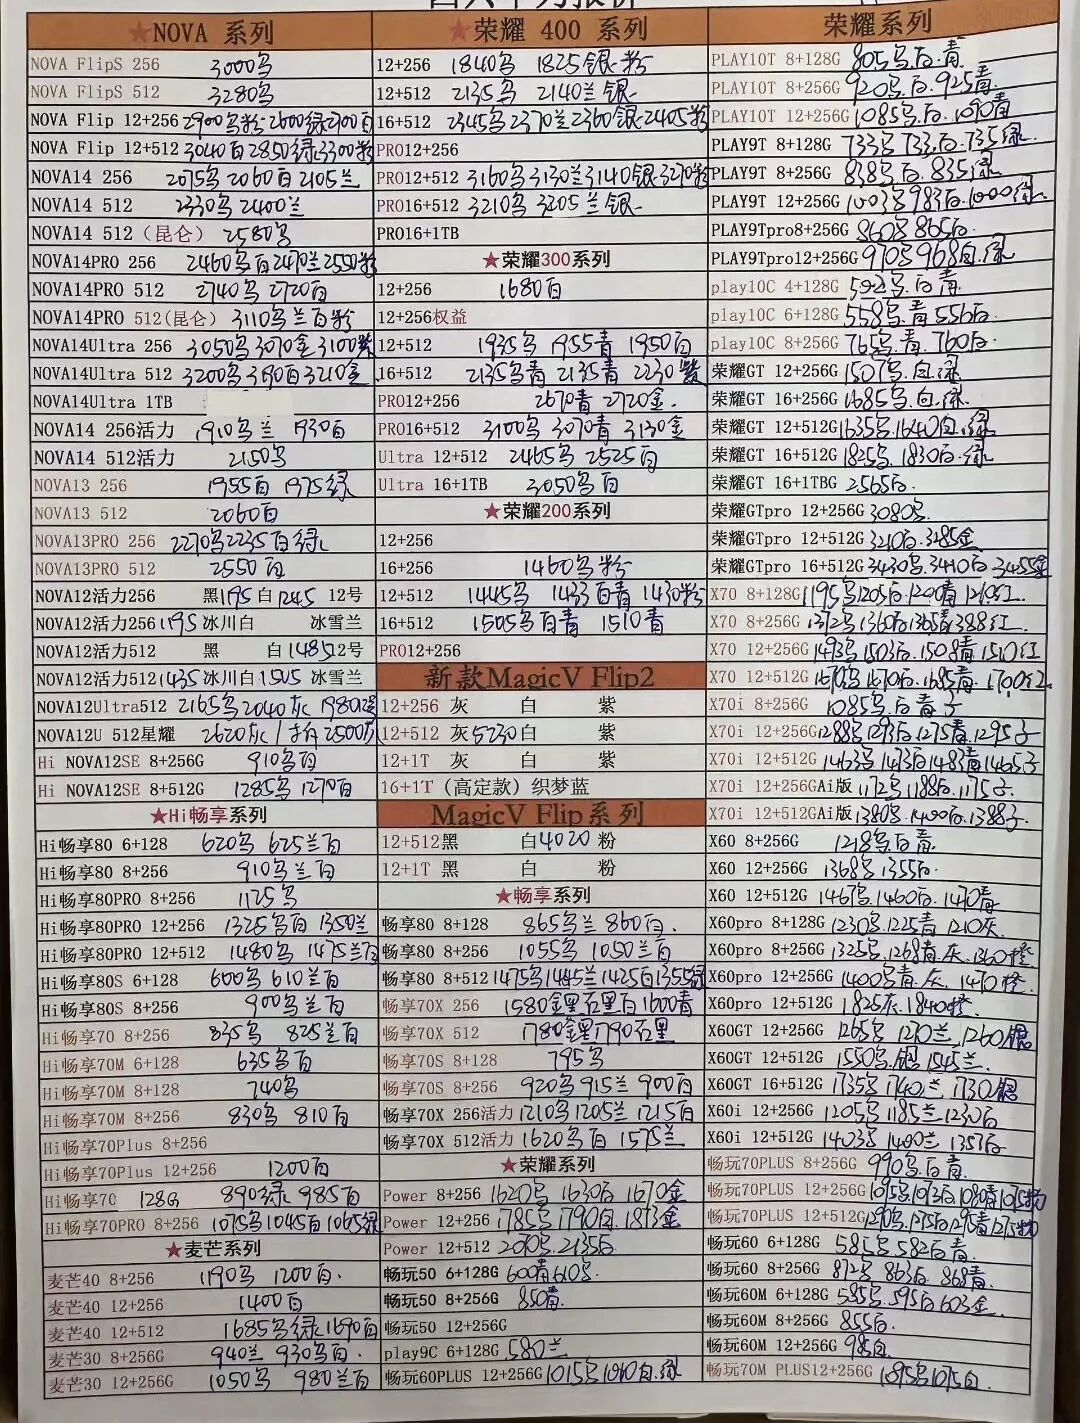 ★NOVA 系列
NOVA FlipS 256 3000乌
NOVA FlipS 512 3280乌
NOVA Flip 12+256 2900乌粉 2600绿 2700白
NOVA Flip 12+512 3040白 2850绿 3300粉
NOVA14 256 2075乌 2060白 2105兰
NOVA14 512 2330乌 2400兰
NOVA14 512 (昆仑) 2580乌
NOVA14PRO 256 2460乌白 2470兰 2550粉
NOVA14PRO 512 2740乌 2720白
NOVA14PRO 512(昆仑) 3110乌兰白粉
NOVA14Ultra 256 3050乌 3070金 3100紫
NOVA14Ultra 512 3200乌 3190白 3210金
NOVA14Ultra 1TB
NOVA14 256活力 1910乌兰 1930白
NOVA14 512活力 2150乌
NOVA13 256 1955白 1975绿
NOVA13 512 2060白
NOVA13PRO 256 2270乌 2235白绿
NOVA13PRO 512 2550白
NOVA12活力256 黑1195 白1245 12号
NOVA12活力256 1195 冰川白 冰雪兰
NOVA12活力512 黑 白1485 12号
NOVA12活力512 1435 冰川白 1505 冰雪兰
NOVA12Ultra512 2165乌 2040灰 1980
NOVA12U 512星耀 2620灰
Hi NOVA12SE 8+256G 910乌白
Hi NOVA12SE 8+512G 1285乌 1270白
★Hi畅享系列
Hi畅享80 6+128 620乌 625兰白
Hi畅享80 8+256 910乌兰白
Hi畅享80PRO 8+256 1125乌
Hi畅享80PRO 12+256 1325乌白 1350兰
Hi畅享80PRO 12+512 1480乌 1475兰白
Hi畅享80S 6+128 600乌 610兰白
Hi畅享80S 8+256 900乌兰白
Hi畅享70 8+256 835乌 825兰白
Hi畅享70M 6+128 635乌白
Hi畅享70M 8+128 740乌
Hi畅享70M 8+256 830乌 810白
Hi畅享70Plus 8+256
Hi畅享70Plus 12+256 1200白
Hi畅享70 128G 890绿 985白
Hi畅享70PRO 8+256 1075乌 1045白 1065绿
★麦芒系列
麦芒40 8+256 1190乌 1200白
麦芒40 12+256 1400白
麦芒40 12+512 1685乌绿 1690白
麦芒30 8+256G 940兰 930乌白
麦芒30 12+256G 1050乌 980兰白
★荣耀 400 系列
12+256 1840乌 1825银粉
12+512 2135乌 2140兰银
16+512 2345乌 2370兰 2360银 2405粉
PRO12+256
PRO12+512 3160乌 3130兰 3140银 3270粉
PRO16+512 3210乌 3205兰银
PRO16+1TB
★荣耀300系列
12+256 1680白
12+256权益
12+512 1935乌 1955青 1950白
16+512 2135乌青 2135青 2230紫
PRO12+256 2670青 2720金
PRO16+512 3100乌 3070青 3130金
Ultra 12+512 2465乌 2525白
Ultra 16+1TB 3050乌白
★荣耀200系列
12+256
16+256 1460乌粉
12+512 1445乌 1433白青 1430粉
16+512 1505乌白青 1510青
PRO12+256
新款MagicV Flip2
12+256 灰 白 紫
12+512 灰5230白 紫
12+1T 灰 白 紫
16+1T (高定款) 织梦蓝
MagicV Flip系列
12+512黑 白4020 粉
12+1T 黑 白 粉
★畅享系列
畅享80 8+128 865乌兰 860白
畅享80 8+256 1055乌 1050兰白
畅享80 8+512 1475乌 1445兰 1425白 1355绿
畅享70X 256 1580金黑 石黑白 1600青
畅享70X 512 1780金黑 1790石黑
畅享70S 8+128 795乌
畅享70S 8+256 920乌 915兰 900白
畅享70X 256活力 1210乌 1205兰 1215白
畅享70X 512活力 1620乌白 1575兰
★荣耀系列
Power 8+256 1620乌 1630白 1670金
Power 12+256 1785乌 1790白 1873金
Power 12+512 2070乌 2135白
畅玩50 6+128G 600青 610乌
畅玩50 8+256G 850青
畅玩50 12+256G
play9C 6+128G 580兰
畅玩60PLUS 12+256G 1015乌 1010白.绿
荣耀系列
PLAY10T 8+128G 805乌白.青
PLAY10T 8+256G 920乌白.925青
PLAY10T 12+256G 1085乌白.1090青
PLAY9T 8+128G 733乌 733白.735绿
PLAY9T 8+256G 838乌白.835绿
PLAY9T 12+256G 1003乌 983白.1000绿
PLAY9Tpro8+256G 860乌 865白
PLAY9Tpro12+256G 970乌 968白.绿
play10C 4+128G 592乌.白青
play10C 6+128G 558乌.青 556白
play10C 8+256G 765乌.青.760白
荣耀GT 12+256G 1507乌.白.绿
荣耀GT 16+256G 1685乌.白.绿
荣耀GT 12+512G 1635乌.1640白.绿
荣耀GT 16+512G 1825乌.1830白.绿
荣耀GT 16+1TBG 2565白
荣耀GTpro 12+256G 3080乌
荣耀GTpro 12+512G 3210白.3285金
荣耀GTpro 16+512G 3430乌.3440白.3455金
X70 8+128G 1195乌 1205白 1200青 1210红
X70 8+256G 1372乌 1360白 1365青 1388红
X70 12+256G 1493乌 1503白.1508青 1510红
X70 12+512G 1670乌 1670白.1685青.1700红
X70i 8+256G 1085乌.白青子
X70i 12+256G 1288乌 1293白 1275青 1295子
X70i 12+512G 1463乌 1473白 1483青 1465子
X70i 12+256GAi版 1172乌 1188白.1175子
X70i 12+512GAi版 1380乌.1400白.1388子
X60 8+256G 1218乌白青
X60 12+256G 1368乌 1355白
X60 12+512G 1467乌.1460白.1470青
X60pro 8+128G 1230乌.1225青 1210灰
X60pro 8+256G 1325乌.1268青.灰.1360橙
X60pro 12+256G 1400乌青.灰.1470橙
X60pro 12+512G 1825灰.1840橙
X60GT 12+256G 1265乌 1270兰.1260银
X60GT 12+512G 1550乌.银 1545兰
X60GT 16+512G 1735乌 1740兰.1730银
X60i 12+256G 1205乌 1185兰 1230白
X60i 12+512G 1403乌 1400兰.1357白
畅玩70PLUS 8+256G 990乌.白青
畅玩70PLUS 12+256G 1095乌 1073白 1080青
畅玩70PLUS 12+512G 1290乌.1275白.1295青
畅玩60 6+128G 585乌 582白青
畅玩60 8+256G 872乌 863白.868青
畅玩60M 6+128G 585乌.595白 603金
畅玩60M 8+256G 855白
畅玩60M 12+256G 985白
畅玩70M PLUS12+256G 1095乌 1075白